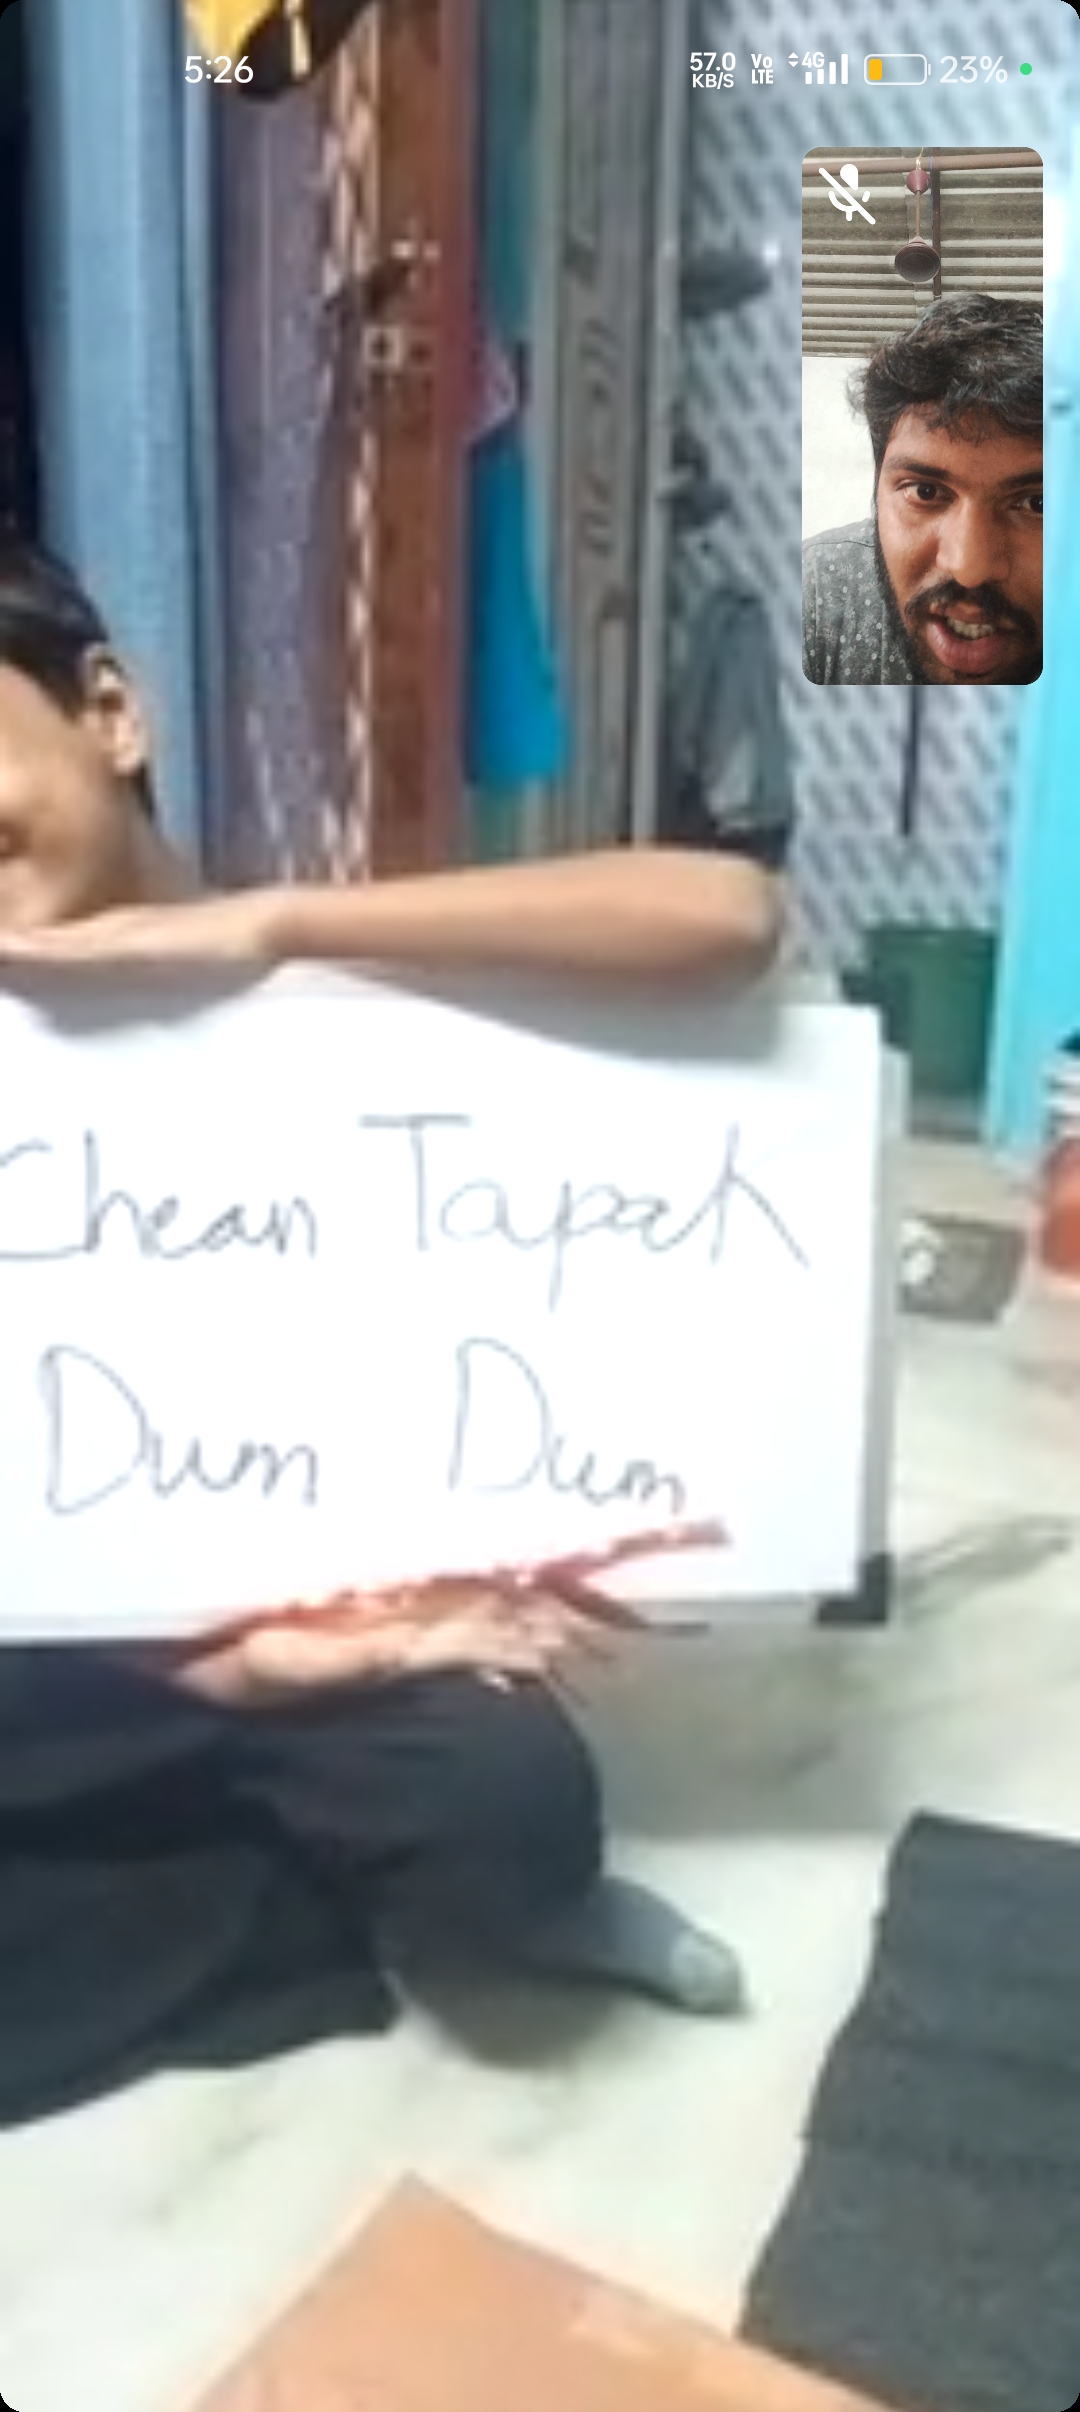 5:26
57.0 KB/S Vo LTE 4G 23%
Chean Tapak
Dum Dum